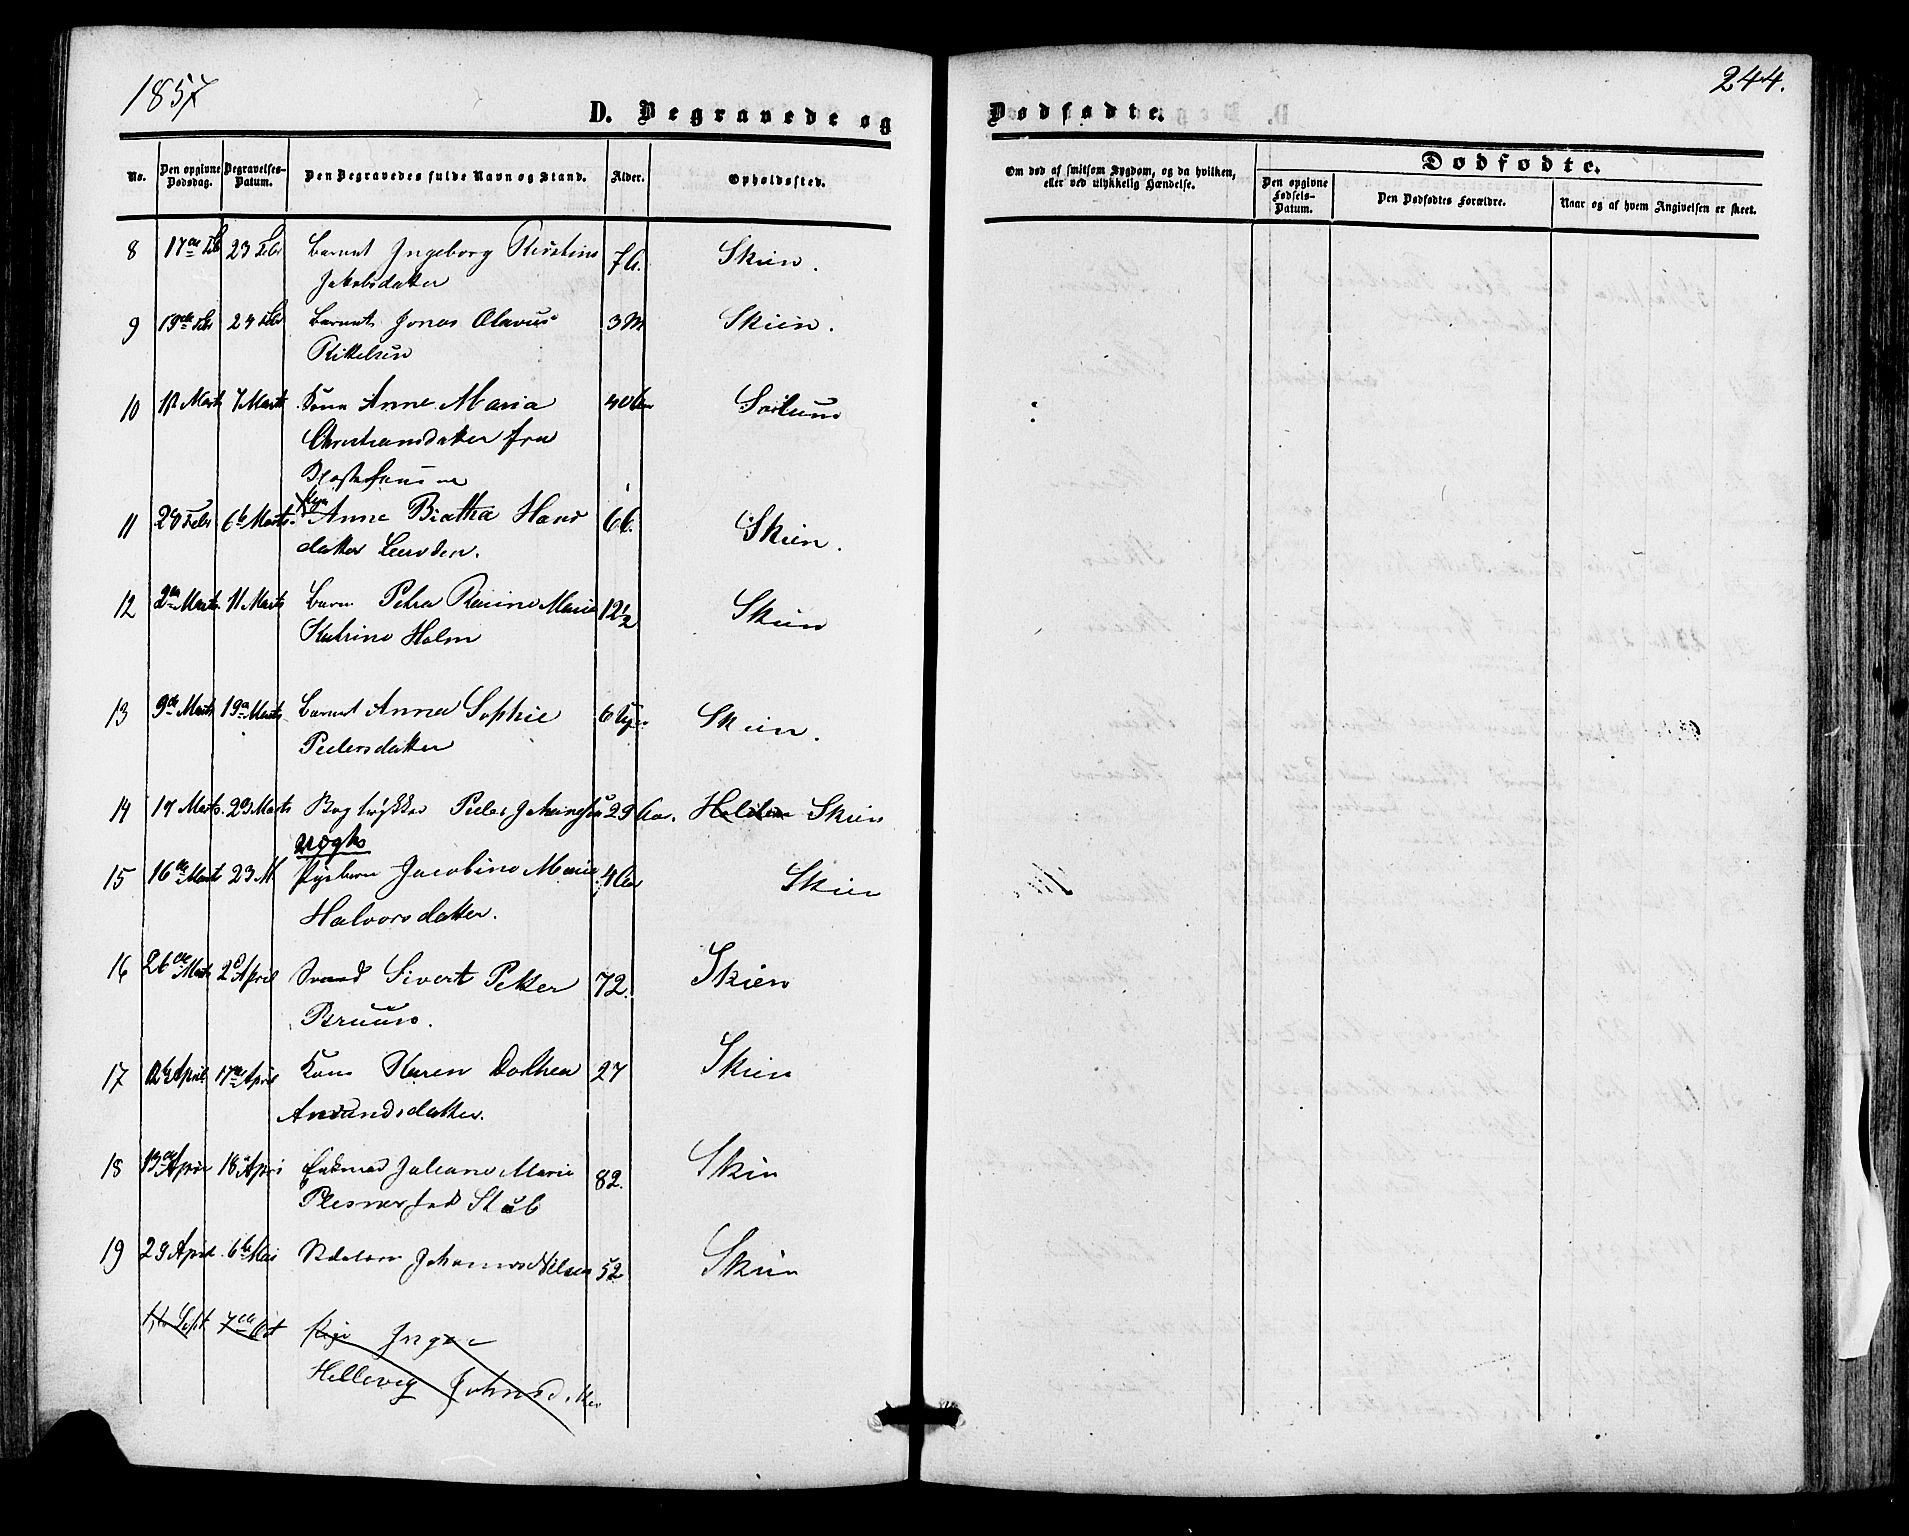 1857
244.
D. Begravede og
Dødfødte.
No.
Den opgivne Dødsdag.
Begravelses-Datum.
Den Begravedes fulde Navn og Stand.
Alder.
Opholdssted.
Om død af smitsom Sygdom, og da hvilken, eller ved ulykkelig Hændelse.
Dødfødte.
Den opgivne Fødsels-Datum.
Den Dødfødtes Forældre.
Naar og af hvem Angivelsen er skeet.
8 17de Feb 23 Febr Barnet Ingeborg Kirstine 7 Skien.
Jakobsdatter
9 19de Febr 24 Febr Barnet Jonas Olavus 3 M Skien.
Kittelsen
10 Marts 7 Marts Kone Anne Maria 40 Solum
Christiansdatter fra
11 28 Febr 6te Marts Anne Beatha Hans 66. Skien.
datter
12 2den Marts 11 Marts Barn Petra Marie 12 1/2 Skien
Katrine Holm
13 9de Marts 19de Marts Barnet Anna Sophie 6 Skien.
Pedersdatter
14 17 Marts 23 Marts Bogtrykker Peder 29 Aar. Holden Skien
15 16de Marts 23 M. Jacobine Marie 4 Aar Skien
Halvorsdatter.
16 26de Marts 2d April Svend Sivert Petter 72. Skien
Bruun.
17 12te April 17de April Kone Karen Dorthea 27 Skien
Anundsdatter.
18 13de April 18de April Enkemad Juliane Marie 82. Skien
Plesner fød Stub
19 29 April 6te Mai Johannes Nilsen 52 Skien
Sept 7de Oct Pige Inger
Hellevig